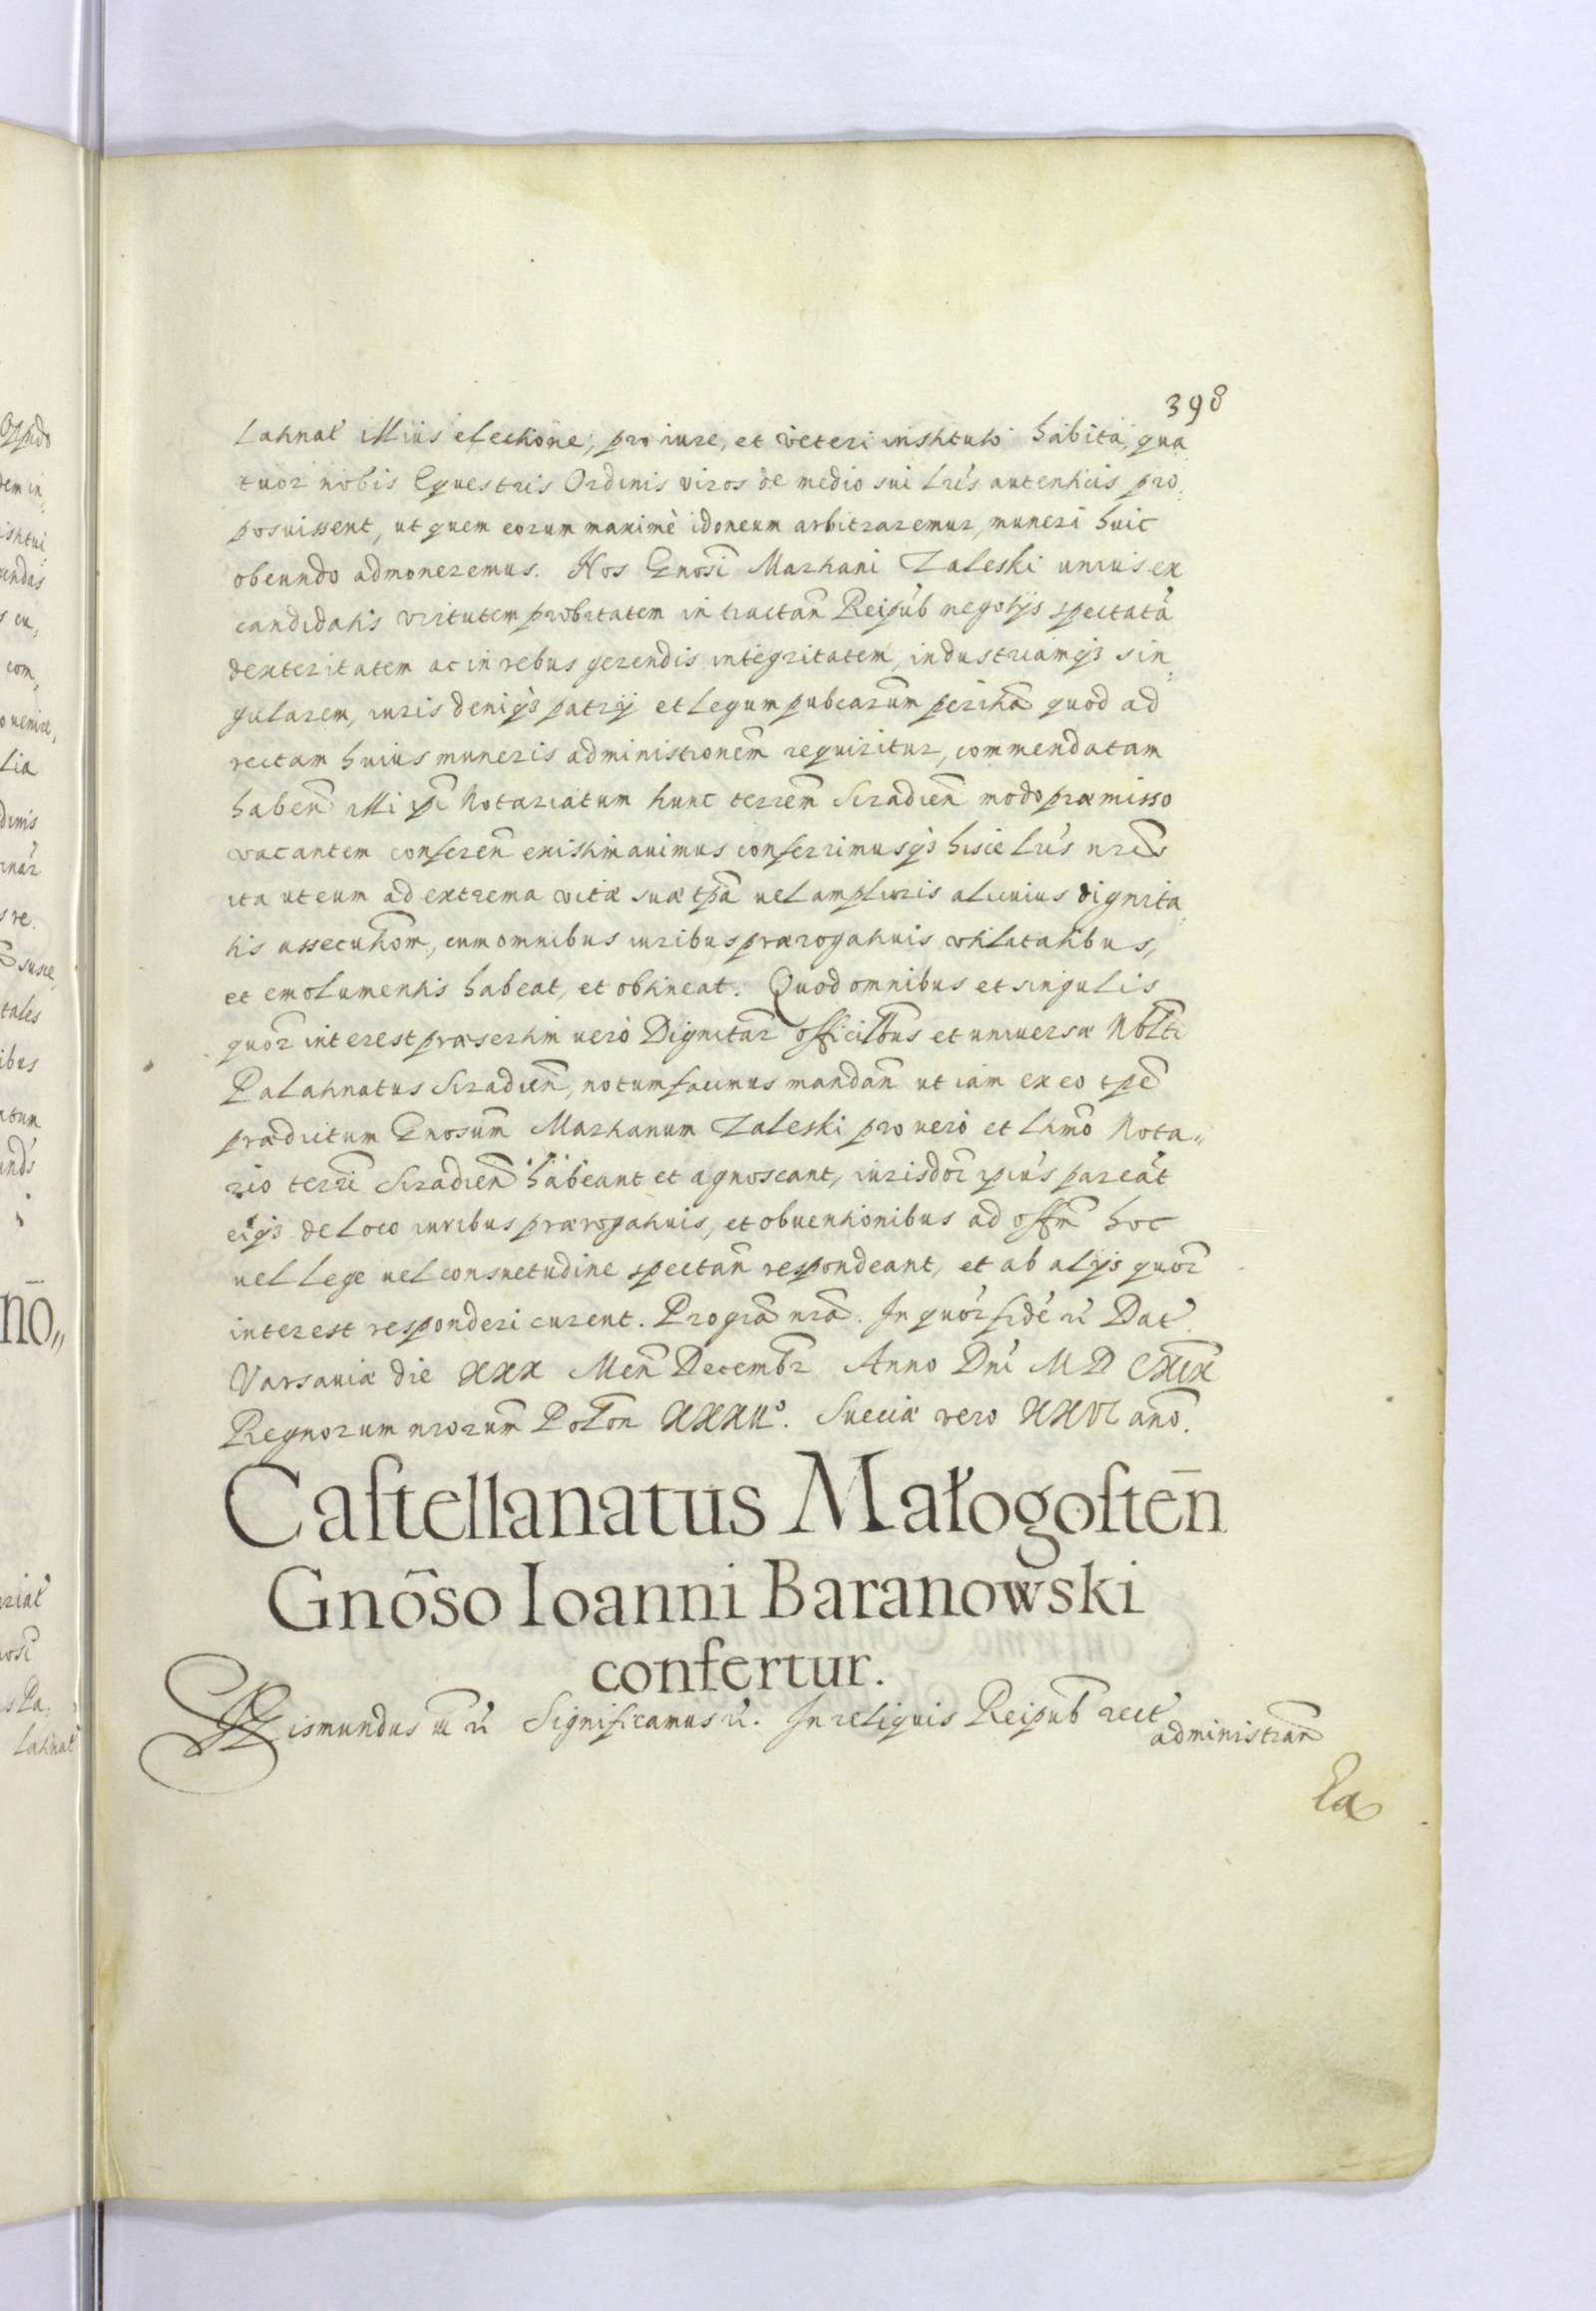 398
latinat illius electione, pro iure, et veteri instituto habita, qua
tuor nobis Equestris Ordinis viros de medio sui Lrīs autenticis pro
posuissent, ut quem eorum maximè idoneum arbitraremur, muneri huic
obeundo admoneremus. Nos Gnosī Martiani Zaleski unius ex
candidatis virtutem probitatem in tractan̄ Reipub negotijs spectatā
dexteritatem ac in rebus gerendis integritatem, industriamq3 sin
gularem, iuris deniq3 patrij et Legum pubcarum̄ peritiā quod ad
rectam huius muneris administronem̄ requiritur, commendatam
haben̄ illi ipī Notariatum hunc terrem̄ Siradien̄ modo præmisso
vacantem conferen̄ existimauimus conferrimusq3 hisce Lrīs nrīs
ita ut eum ad extrema vitæ suæ tpā uel amplioris alicuius dignita
tis assecutiom̄, cum omnibus iuribus prærogatiuis utilitatibus,
et emolumentis habeat, et obtineat. Quod omnibus et singulis
quor̄ interest præsertim uerò Dignitar̄ officilbus et uniuersæ Nobltī
Palatinatus Siradien̄, notum facimus mandan̄ ut iam ex eo tpē
prædictum Gnosum̄ Martianum Zaleski pro uero et Ltimō Nota„
rio terrī Siradien̄ habeant et agnoscant, iurisdoī ipius pareāt
eiq3 de Loco iuribus prærogatiuis, et obuentionibus ad offm̄ hoc
uel Lege uel consuetudine spectan̄ respondeant, et ab alijs quor̄
interest responderi curent. Pro grā nrā. In quor̄ fidē rī Dat
Varsauiæ die XXX Men̄ Decembr̄ Anno Dnī MD CXIX
Regnorum nrorum̄ Polon̄ XXXIIº. Sueciæ vero XXVI anō.
Castellanatus Małogosten̄
Gnōso Ioanni Baranowski
confertur.
Sigismundus III rī Significamus rī. In reliquis Reipub rect
administran̄
Ea